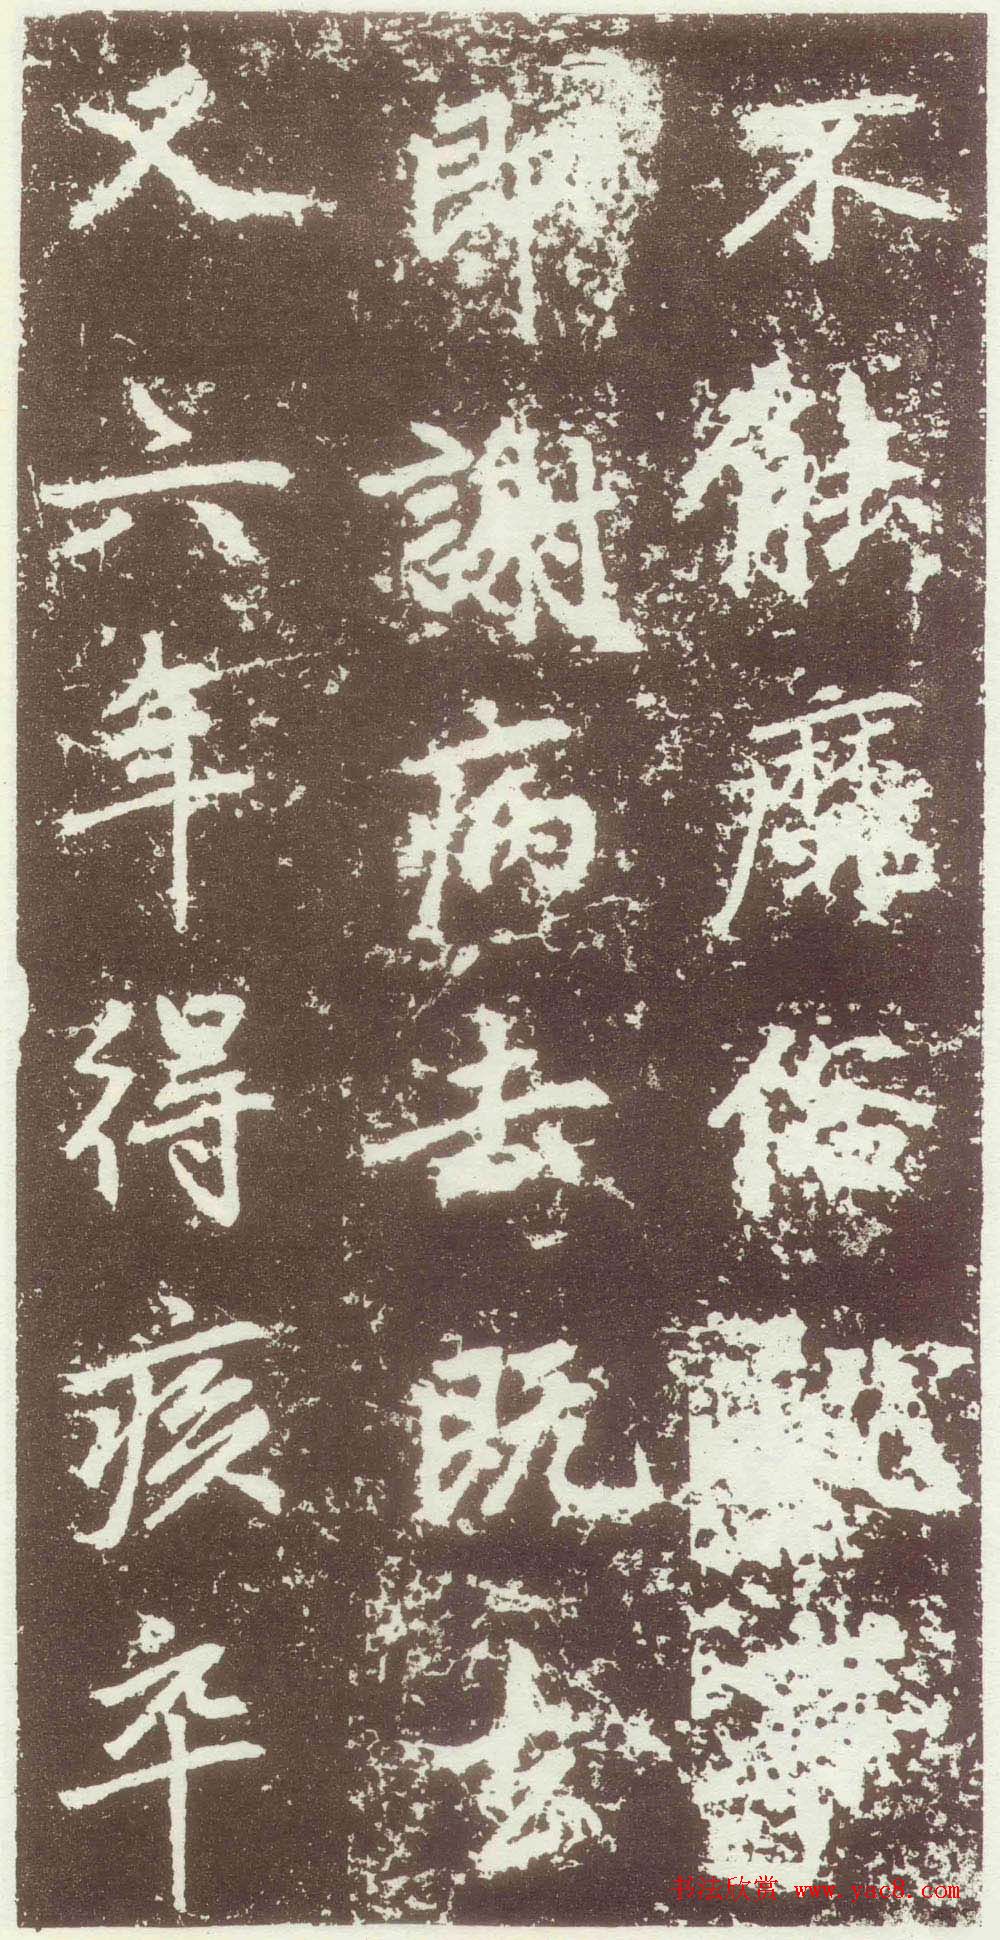 不能靡俗
即謝病去既去
又六年得疾卒
书法欣赏 www.yac8.com